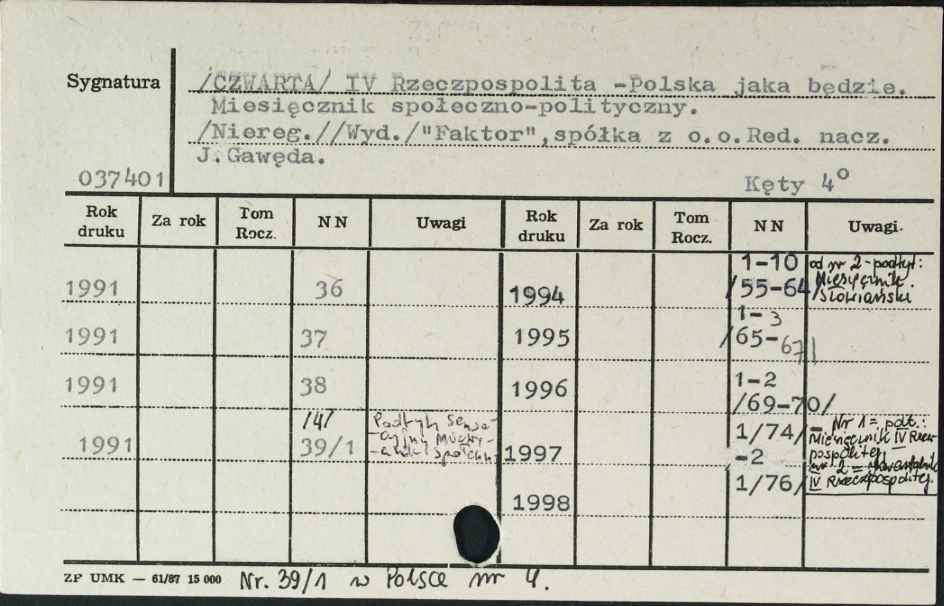 Sygnatura
/CZWARTA/ IV Rzeczpospolita -Polska jaka będzie.
Miesięcznik społeczno-polityczny.
/Niereg.//Wyd./"Faktor",spółka z o.o.Red. nacz.
J.Gawęda.
037401
Kęty 4°
Rok druku Za rok Tom Rocz. NN Uwagi Rok druku Za rok Tom Rocz. NN Uwagi.
1991 36 1994 1-10 /55-64/ od nr 2-podtyt: Miesięcznik. Słowiański
1991 37 1995 1-3 /65-67/
1991 38 1996 1-2 /69-70/
1991 /4/ 39/1 Podtyt: 1997 1/74/ -2 - Nr 1=, podt.: Miesięcznik IV Rzeczpospolitej
nr 2 = IV Rzeczpospolitej.
1998 1/76/
ZP UMK — 61/87 15 000 Nr. 39/1 w Polsce nr 4.